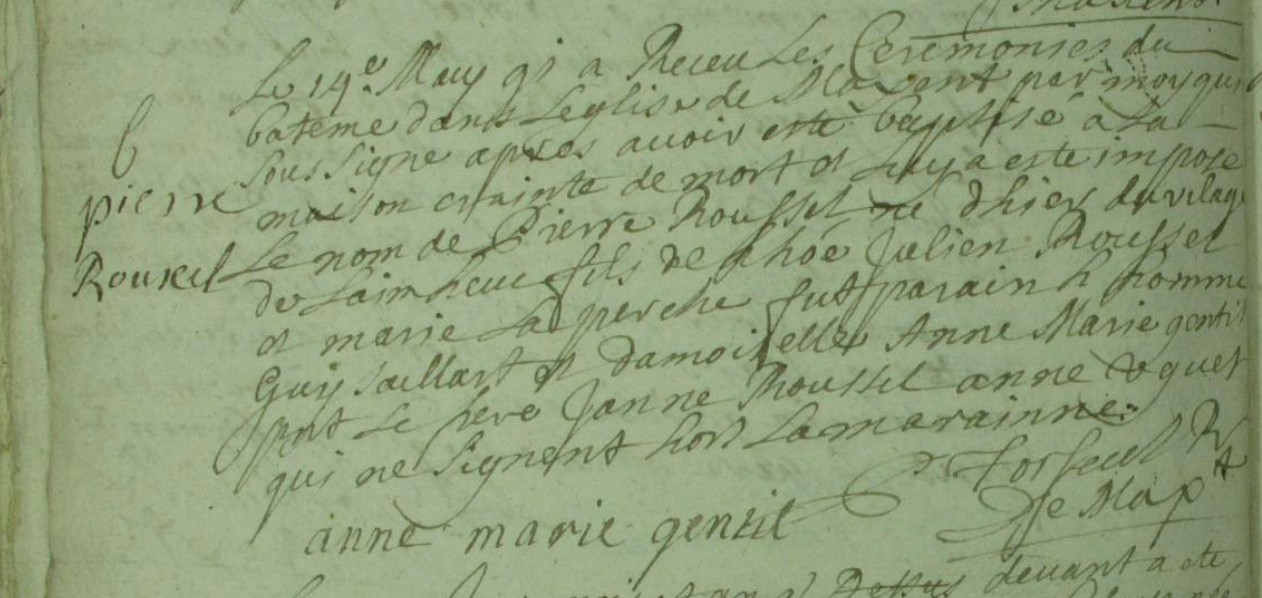 b
pierre
Rouxel
Le 19e. May 91 a Receu Les Ceremonies du
bateme dans Leglise de Maxent par moy qui
soussigne apres avoir esté baptisé a La
maison crainte de mort et Luy a este impose
Le nom de Pierre Roussel né dhier du vilage
de fils de Julien Roussel
et marie La perche fut parain h homme
Guy Saillart et damoiselle Anne Marie gentil
pnt Le pere Janne Roussel anne
qui ne signent hors La marainne.
anne marie gentil
de Maxt
devant a ete